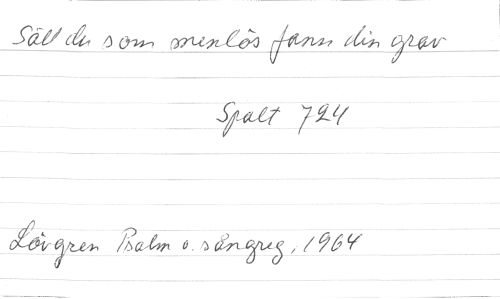 Säll du som menlös fann din grav
Spalt 724
Lövgren Psalm o. sångreg, 1964